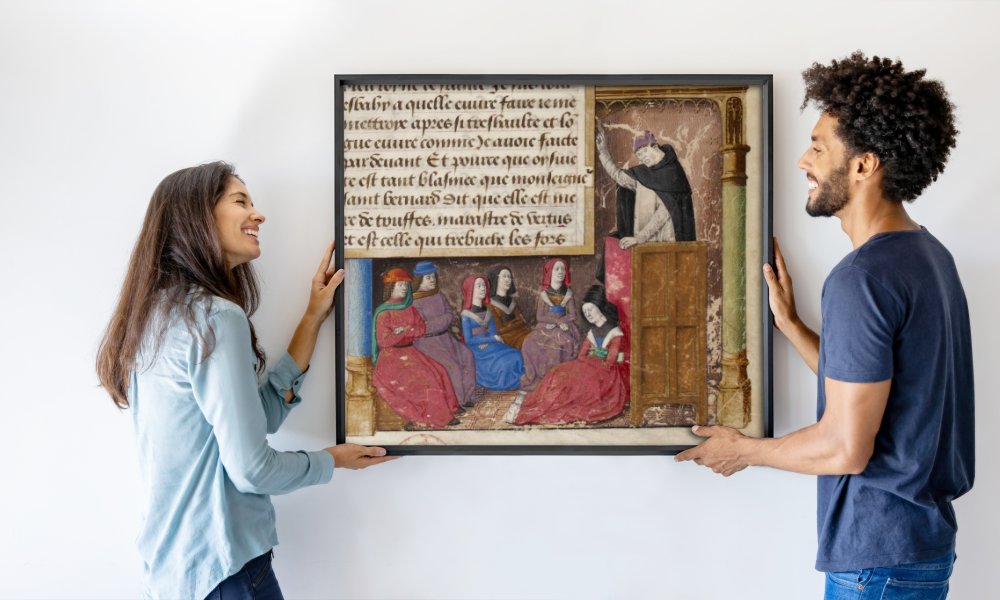 esbahy a quelle euure faire ie me
mettroye apres si treshaulte et lo
gue euure comme Je auoie faicte
par deuant Et pource que oysiue
te est tant blasmee que monseigne
saint bernard dit que elle est me
re de touffes. marastre de vertus
et est celle qui trebuche les fors